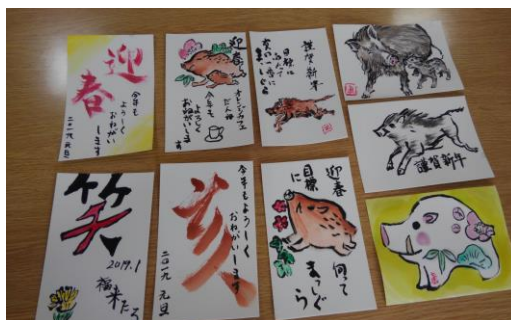 迎
春
今年も
よろしく
おねがい
します
二〇一九 元旦
迎春
今年も
よろしく
おねがいしま
す
謹賀新年
目標に
向って
まっしぐら
謹賀新年
笑
2019.1
福来たる
亥
今年もよろしく
おねがいします
二〇一九 元旦
迎春
目標
に
向って
まっしぐら